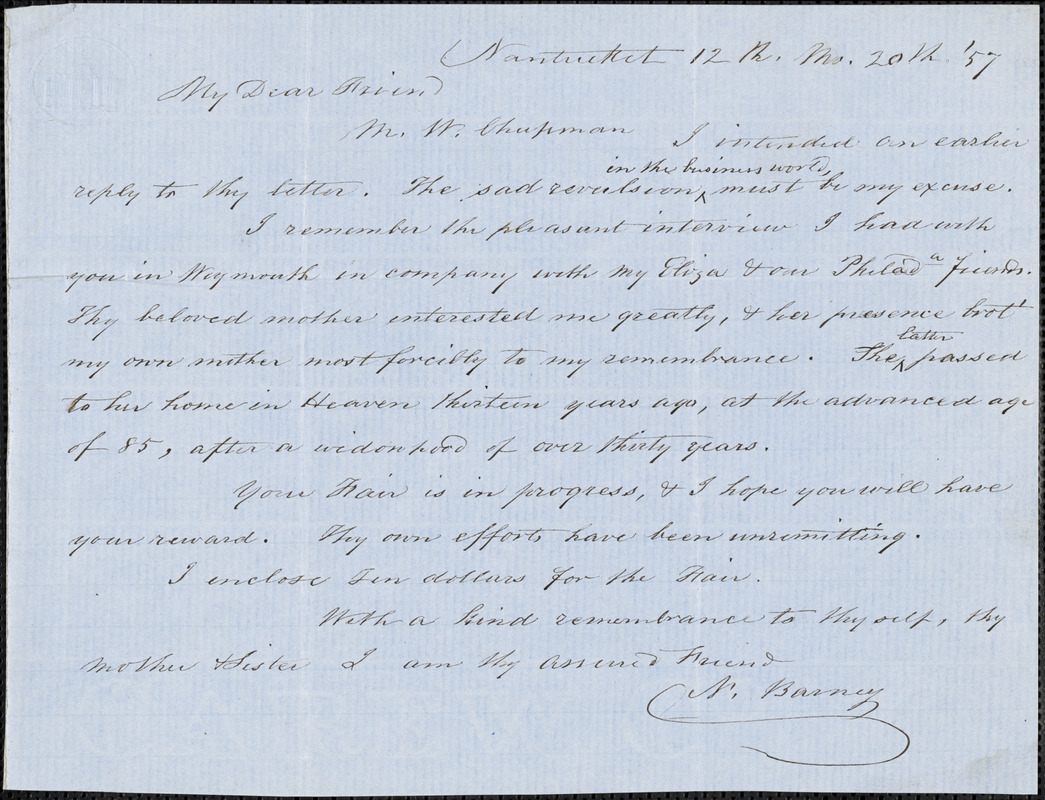 Nantucket 12th. Mo. 20th. '57
My Dear Friend
M. W. Chapman
I intended an earlier
in the business world
reply to thy letter. The sad revulsion ^ must be my excuse.
I remember the pleasant interview I had with
you in Weymouth in company with my Eliza & our Philada friends.
Thy beloved mother interested me greatly, & her presence brot'
my own mother most forcibly to my remembrance. The ^ passed
latter
to her home in Heaven thirteen years ago, at the advanced age
of 85, after a widowhood of over thirty years.
Your Fair is in progress, & I hope you will have
your reward. Thy own efforts have been unremitting.
I enclose Ten dollars for the Fair.
With a kind remembrance to thyself, thy
mother & Sister I am thy assured Friend
N. Barney